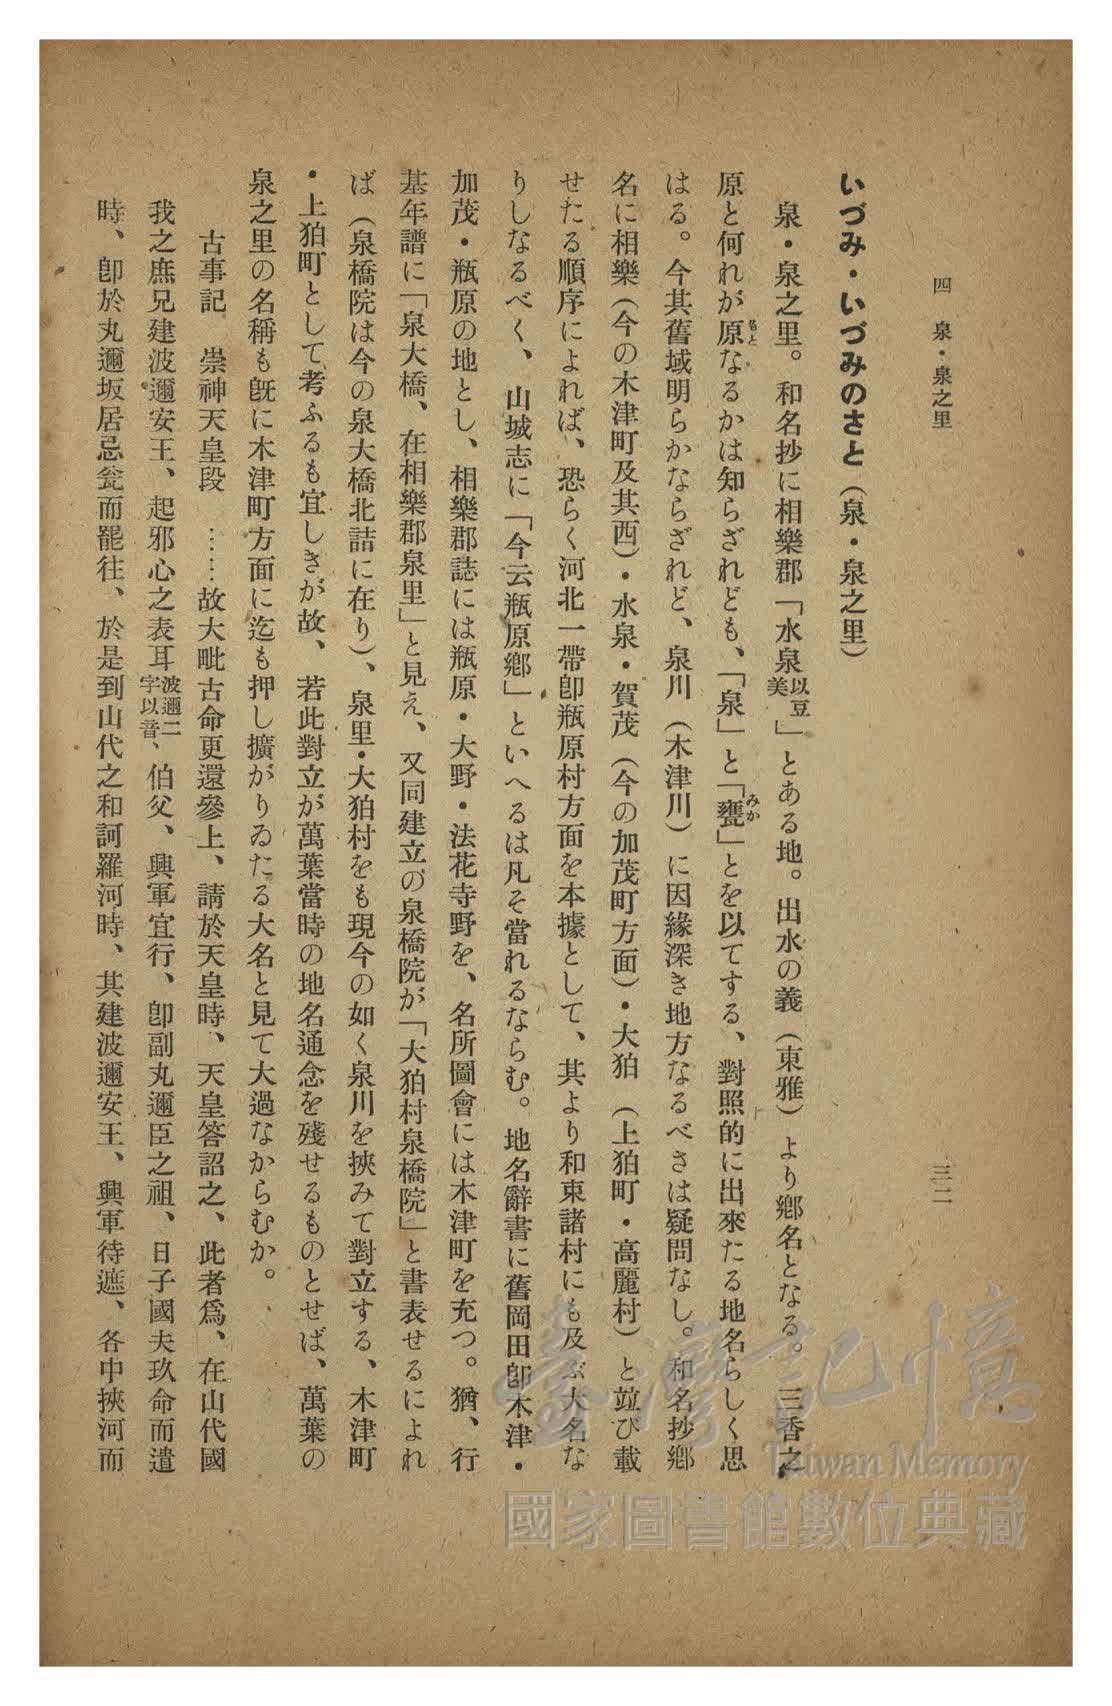 四　泉・泉之里　三二
いづみ・いづみのさと（泉・泉之里）
泉・泉之里。和名抄に相樂郡「水泉以豆美」とある地。出水の義（東雅）より鄕名となる。三香之
原と何れが原なるかは知らざれども、「泉」と「甕みか」とを以てする、對照的に出來たる地名らしく思
はる。今其舊域明らかならざれど、泉川（木津川）に因緣深き地方なるべさは疑問なし。和名抄鄕
名に相樂（今の木津町及其西）・水泉・賀茂（今の加茂町方面）・大狛（上狛町・高麗村）と竝び載
せたる順序によれば、恐らく河北一帶卽瓶原村方面を本據として、其より和束諸村にも及ぶ大名な
りしなるべく、山城志に「今云瓶原鄕」といへるは凡そ當れるならむ。地名辭書に舊岡田卽木津・
加茂・瓶原の地とし、相樂郡誌には瓶原・大野・法花寺野を、名所圖會には木津町を充つ。猶、行
基年譜に「泉大橋、在相樂郡泉里」と見え、又同建立の泉橋院が「大狛村泉橋院」と書表せるによれ
ば（泉橋院は今の泉大橋北詰に在り）、泉里・大狛村をも現今の如く泉川を挾みて對立する、木津町
・上狛町として考ふるも宜しきが故、若此對立が萬葉當時の地名通念を殘せるものとせば、萬葉の
泉之里の名稱も旣に木津町方面に迄も押し擴がりゐたる大名と見て大過なからむか。
古事記　崇神天皇段　……故大毗古命更還參上、請於天皇時、天皇答詔之、此者爲、在山代國
我之庶兄建波邇安王、起邪心之表耳波邇二字以音、伯父、興軍宜行、卽副丸邇臣之祖、日子國夫玖命而遣
時、卽於丸邇坂居忌瓮而罷往、於是到山代之和訶羅河時、其建波邇安王、興軍待遮、各中挾河而
臺灣記憶
Taiwan Memory
國家圖書館數位典藏